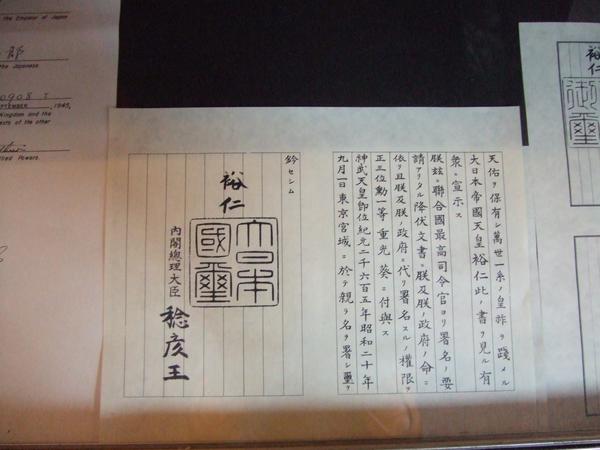 the Emperor of Japan
郎
the Japanese
0908 I
SEPTEMBER , 1945,
Kingdom and the
ests of the other
Powers.
天佑ヲ保有シ萬世一系ノ皇祚ヲ踐メル
大日本帝國天皇裕仁此ノ書ヲ見ル有
衆ニ宣示ス
朕茲ニ聯合國最高司令官ヨリ署名ノ要
請アリタル降伏文書ニ朕及朕ノ政府ノ命ニ
依リ且朕及朕ノ政府ニ代リ署名スルノ權限ヲ
正三位勲一等重光葵ニ付與ス
神武天皇卽位紀元二千六百五年昭和二十年
九月一日東京宮城ニ於テ親ラ名ヲ署シ璽ヲ
鈐セシム
裕仁
大日本
國璽
内閣總理大臣 稔彦王
裕仁
御璽